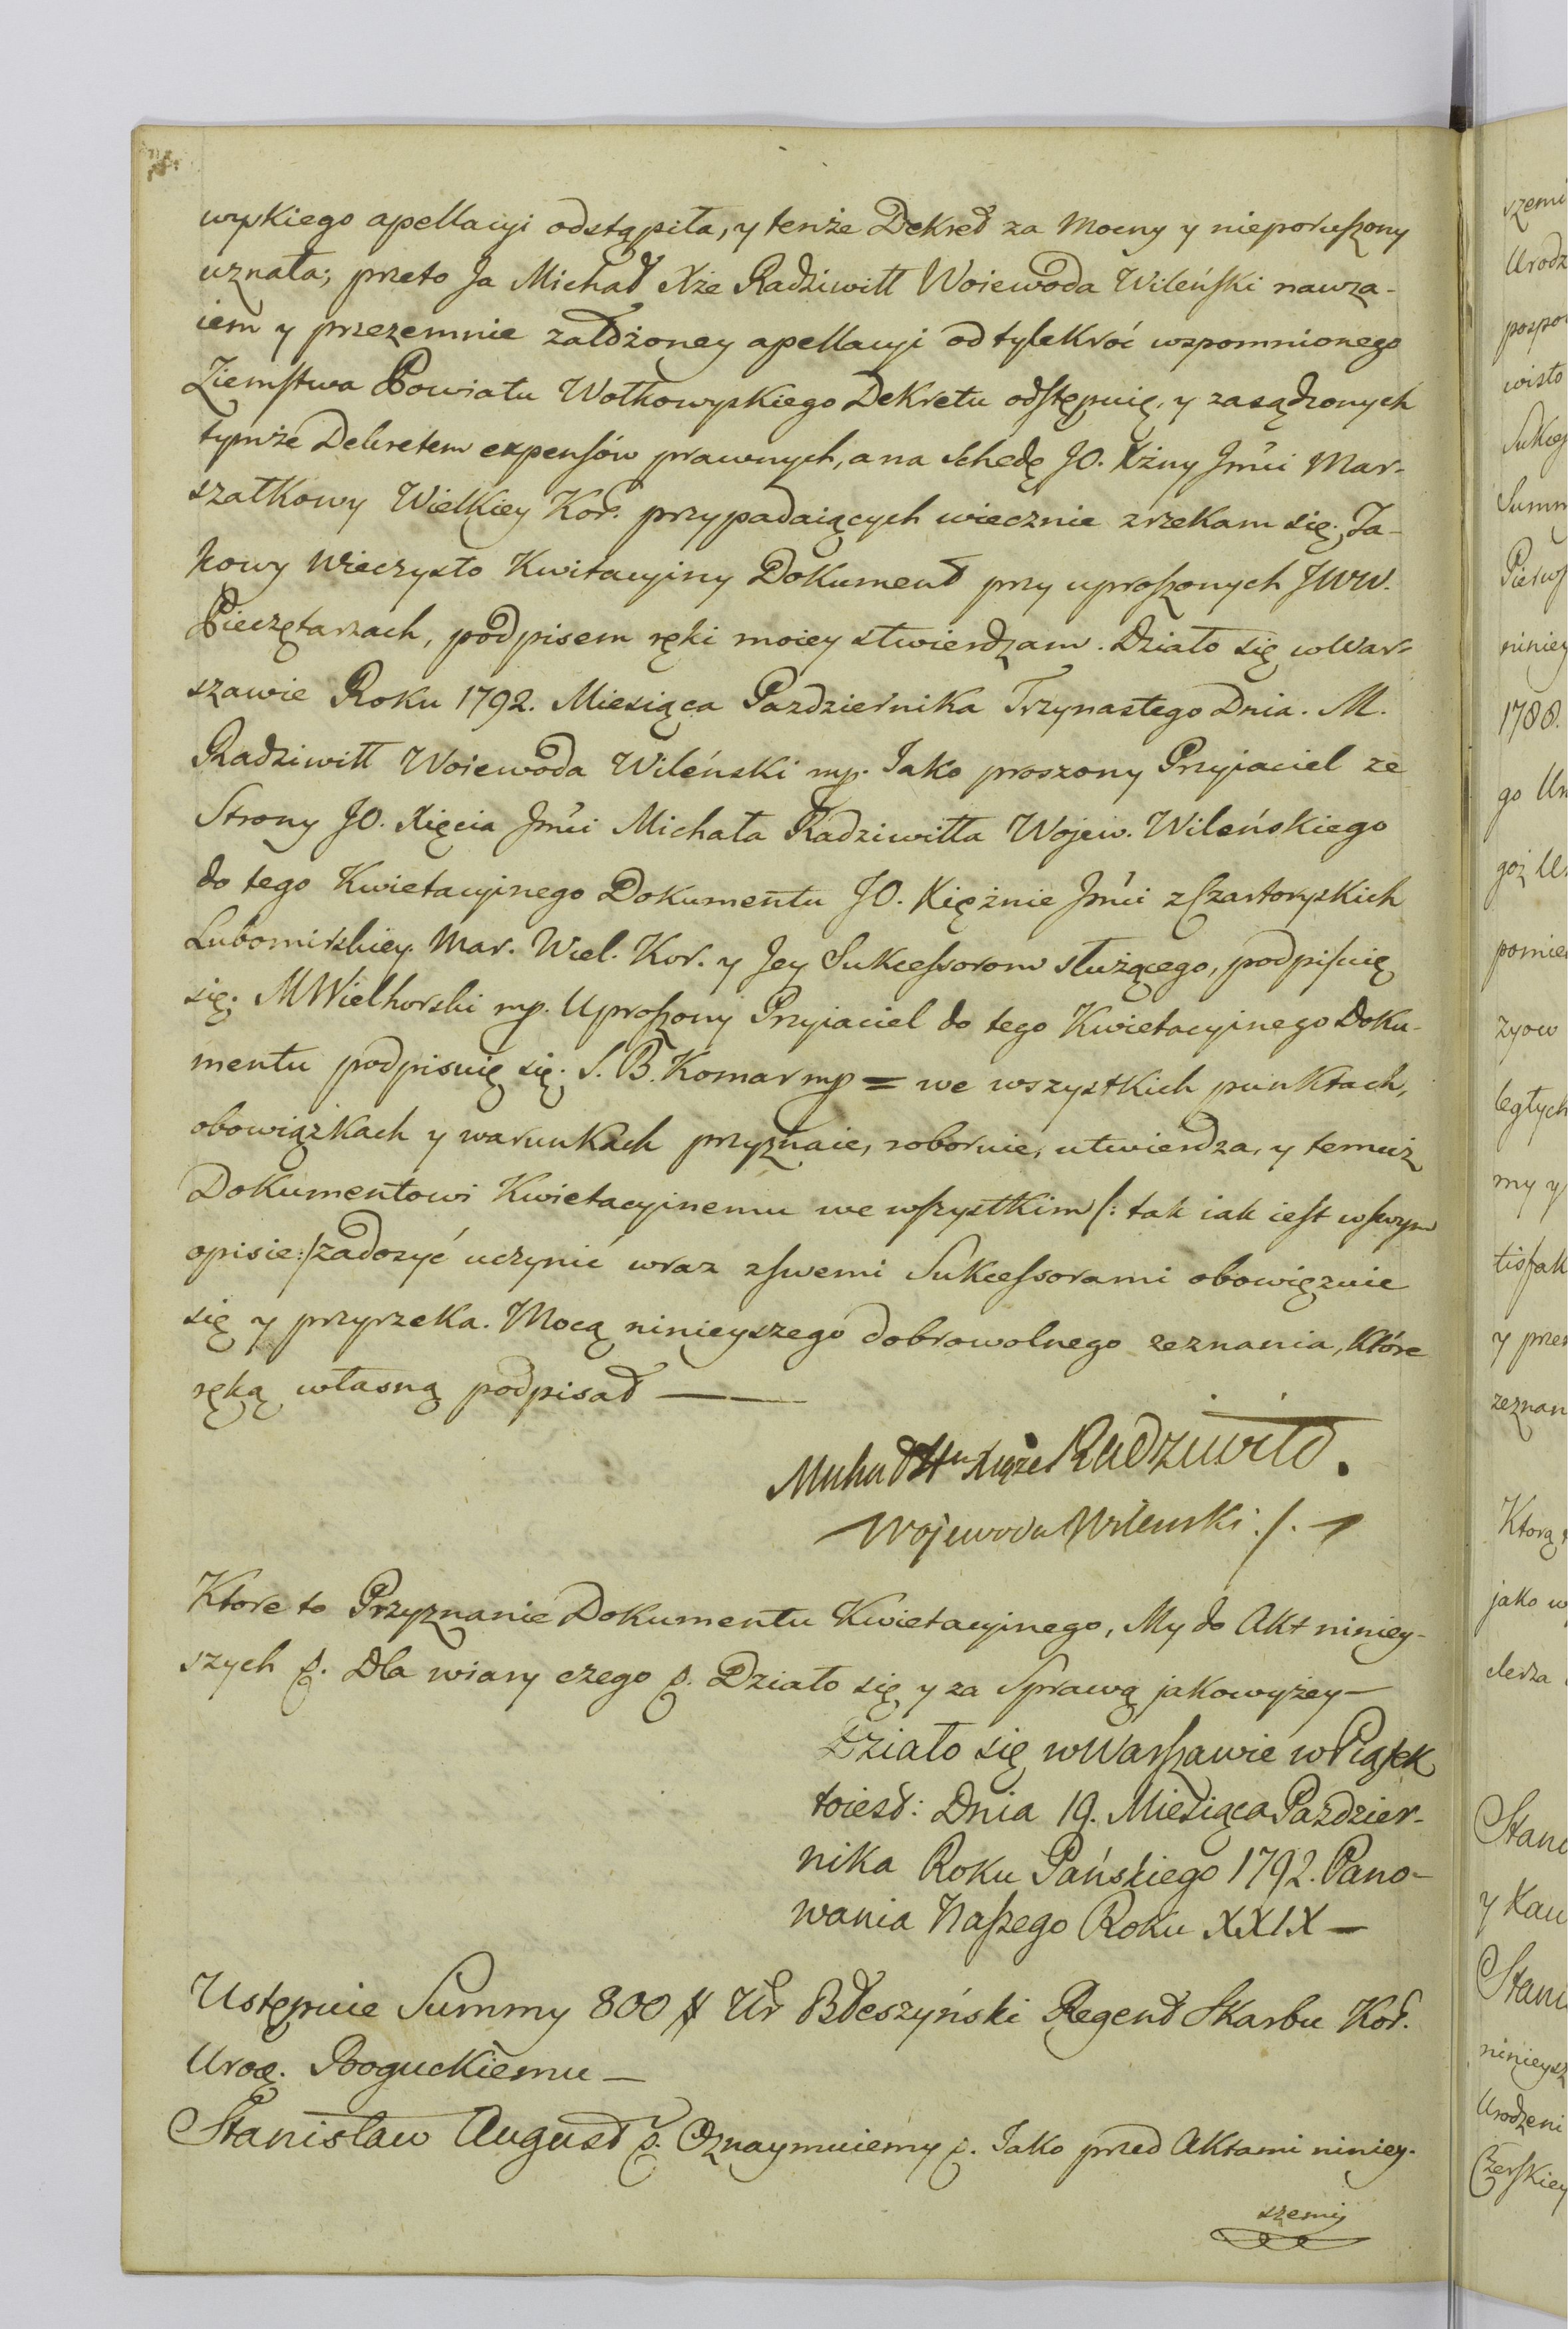 wyskiego apellacyi odstąpiła, y tenże Dekret za Mocny y nieporuszony
uznała; przeto Ja Michał Xże Radziwiłł Woiewoda Wileński nawza-
iem y przezemnie założoney apellacyi od tylekroć wspomnionego
Ziemstwa Powiatu Wołkowyskiego Dekretu odstępuię, y zasądzonych
tymże Dekretem expensów prawnych, a na Schedę JO. Xżny Jmći Mar-
szałkowy Wielkiey Kor. przypadaiących wiecznie zrzekam się. Ta-
kowy Wieczysto Kwitacyiny Dokument przy uproszonych JWW.
Pieczętarzach, podpisem ręki moiey stwierdzam. Działo się w War-
szawie Roku 1792. Miesiąca Pazdziernika Trzynastego Dnia. M.
Radziwiłł Woiewoda Wileński mp. Jako proszony Przyiaciel ze
Strony JO. Xięcia Jmći Michała Radziwiłła Wojew. Wileńskiego
do tego Kwietacyjnego Dokumentu JO. Xiężnie Jmći z Czartoryskich
Lubomirskiey. Mar. Wiel. Kor. y Jey Sukcessorom służącego, podpisuię
się. M Wielhorski mp. Uproszony Przyiaciel do tego Kwietacyjnego Doku-
mentu podpisuię się. S. B. Komar mp = we wszystkich punktach,
obowiązkach y warunkach przyznaie, roboruie, utwierdza, y temuż
Dokumentowi Kwietacyjnemu we wszystkim /: tak iak iest w swym
opisie :/ zadosyć uczynić wraz z swemi Sukcessorami obowięzuie
się y przyrzeka. Mocą ninieyszego dobrowolnego zeznania, które
ręką własną podpisał —
Michał Xiąże Radziwiłł.
Wojewoda Wilenski ./.
Ktore to Przyznanie Dokumentu Kwietacyjnego, My do Akt niniey-
szych p. Dla wiary czego p. Działo się y za Sprawą jakowyżey —
Działo się w Warszawie w Piątek
toiest: Dnia 19. Miesiąca Pazdzier-
nika Roku Pańskiego 1792. Pano-
wania Naszego Roku XXIX —
Ustępuie Summy 800 # Ur Błeszyński Regent Skarbu Kor.
Uroę. Boguckiemu —
Stanisław August p. Oznaymuiemy p. Jako przed Aktami niniey-
szemi
szemi
Urodz
wisto
Summ
niniey
1788.
pomie
legtych
my y
tisfak
y prze
zeznan
Ktorą
jako w
Stani
y Kaw
Stani
ninieysz
Urodzeni
Czerskiey